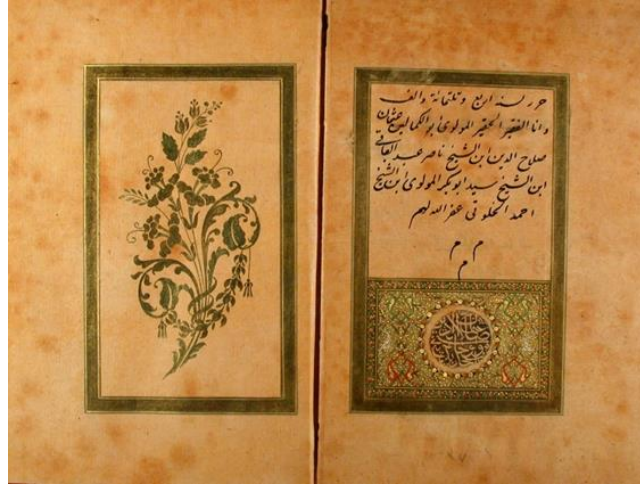 حرر سنة اربع وثلثمائة والف
وانا الفقير الحقير المولوى ابو الكمالين عثمان
صلاح الدين ابن الشيخ ناصر عبد الباقى
ابن الشيخ سيد ابو بكر المولوى ابن الشيخ
احمد الخلوتى عفر الله لهم
م م
م